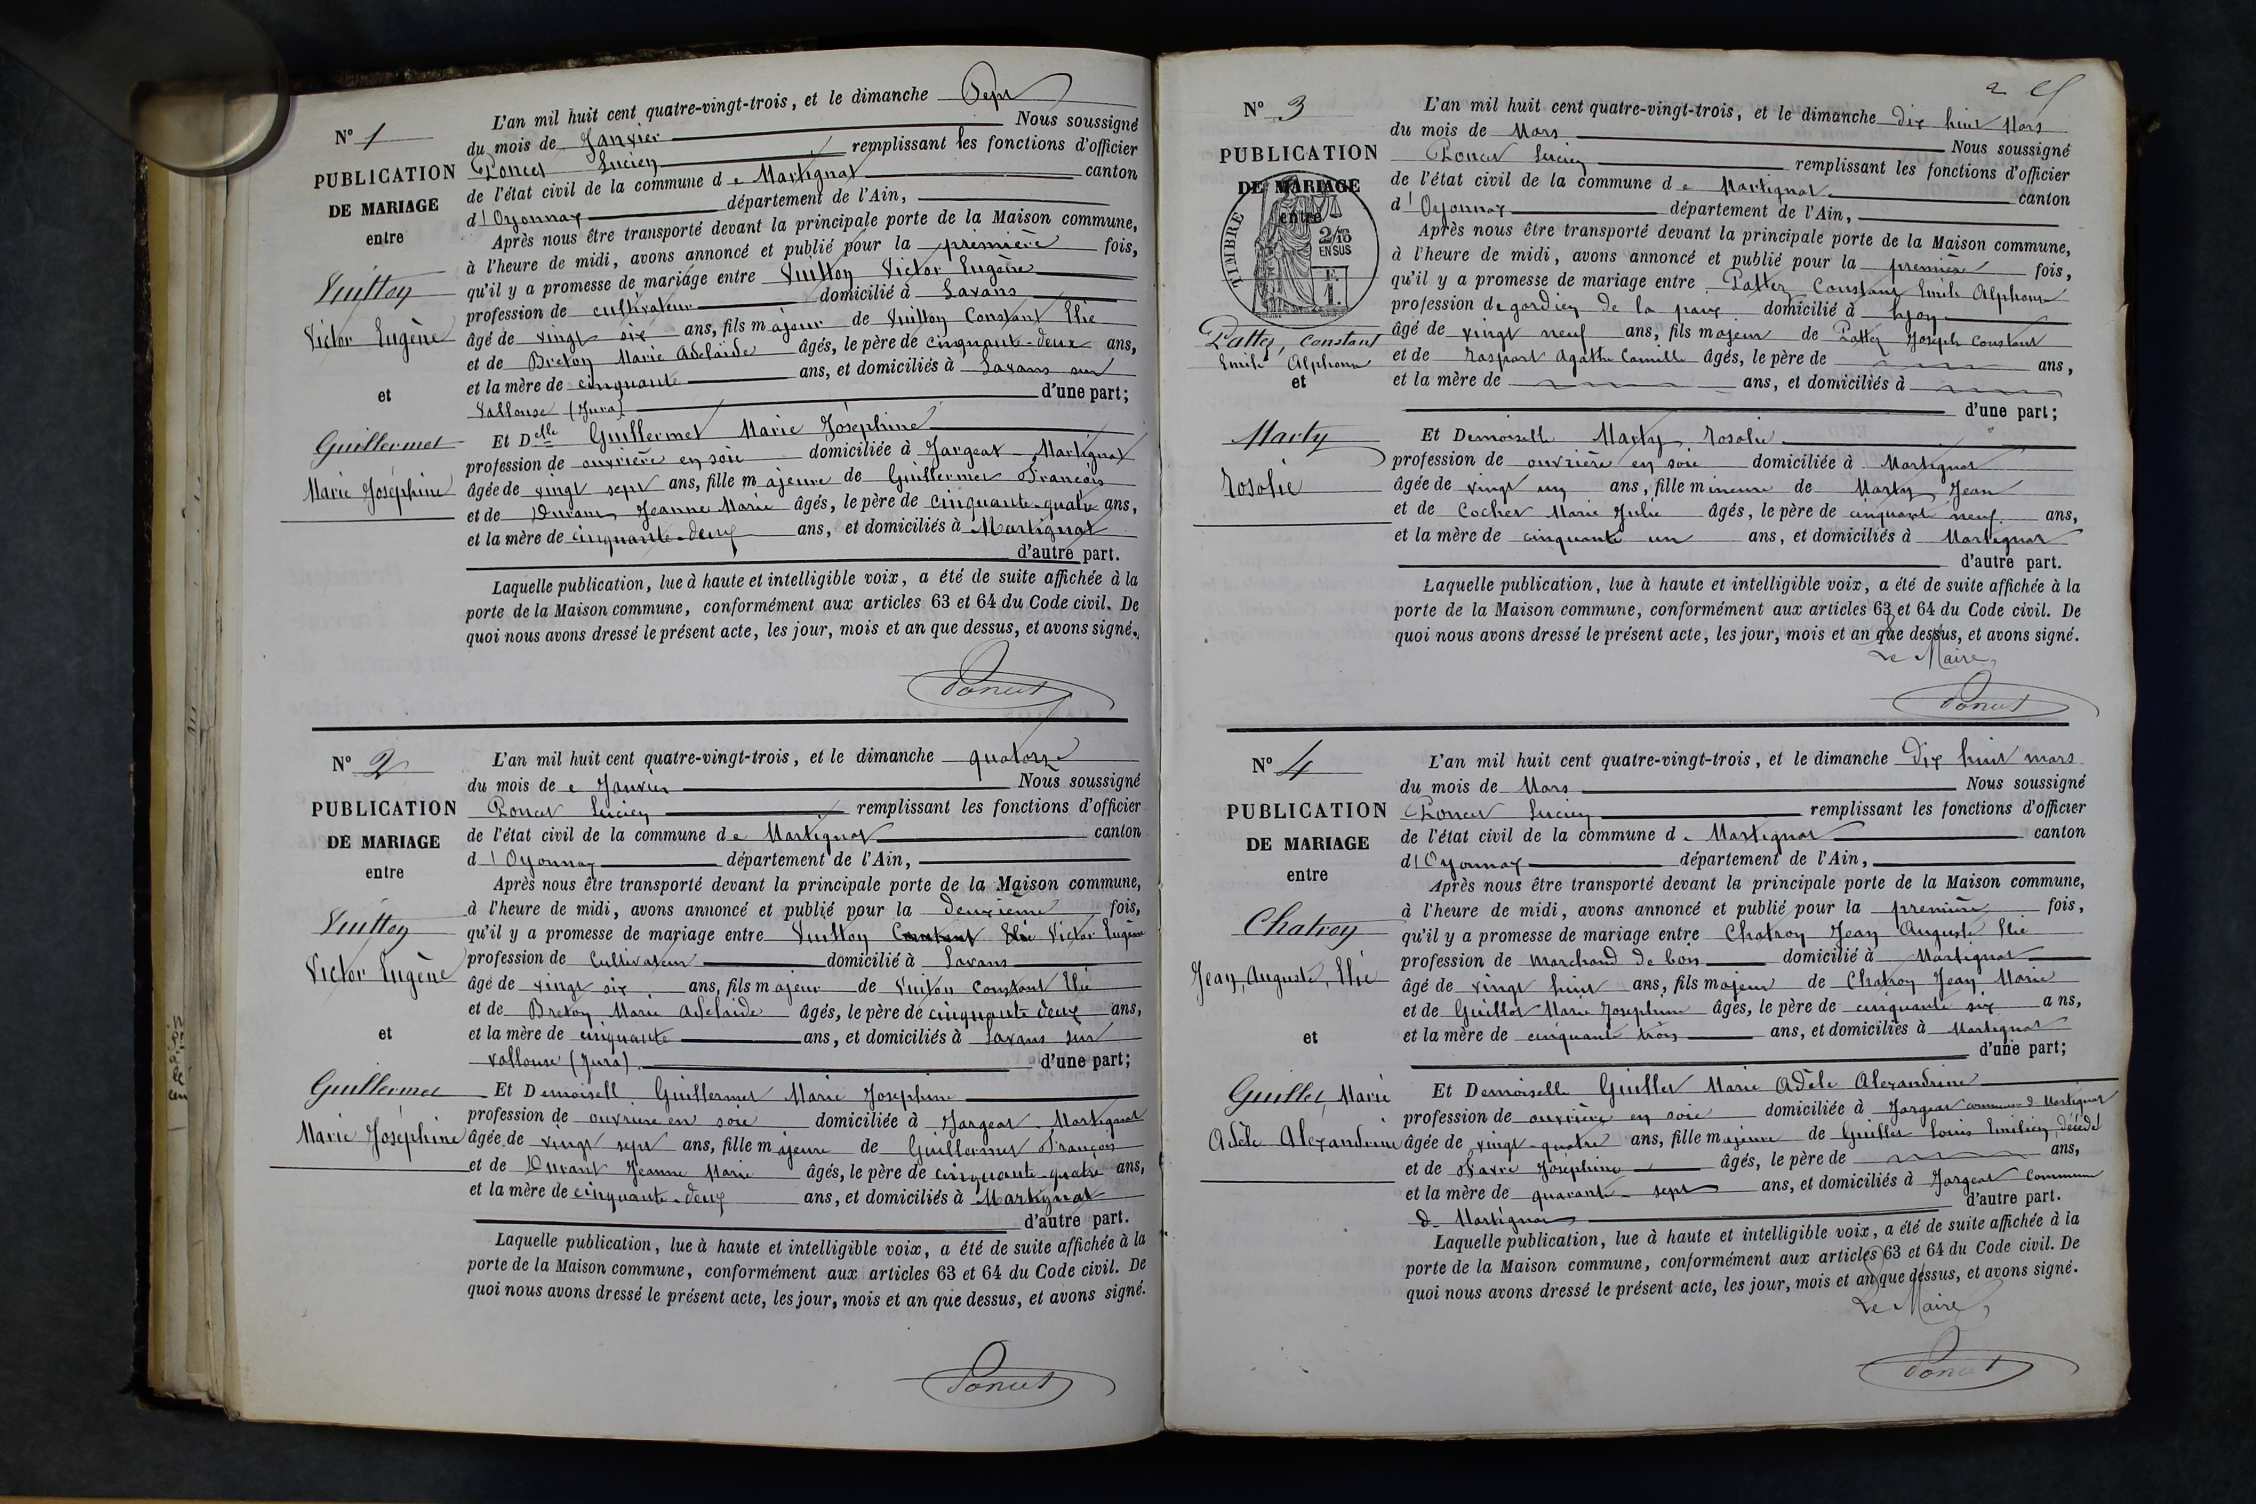 N° 1
PUBLICATION
DE MARIAGE
entre
Vuitton
Victor Eugène
et
Guillermet
Marie Joséphine
L'an mil huit cent quatre-vingt-trois, et le dimanche Sept
du mois de Janvier Nous soussigné
Poncet Lucien remplissant les fonctions d'officier
de l'état civil de la commune de Martignat canton
d'Oyonnax département de l'Ain,
Après nous être transporté devant la principale porte de la Maison commune,
à l'heure de midi, avons annoncé et publié pour la première fois,
qu'il y a promesse de mariage entre Vuitton Victor Eugène
profession de cultivateur domicilié à Lavans
âgé de vingt six ans, fils majeur de Vuitton Constant Elie
et de Breton Marie Adelaïde âgés, le père de cinquante-deux ans,
et la mère de cinquante ans, et domiciliés à Lavans sur
Vallouse (Jura) d'une part;
Et Delle Guillermet Marie Joséphine
profession de ouvrière en soie domiciliée à Jargeat Martignat
âgée de vingt sept ans, fille majeure de Guillermet François
et de Durant Jeanne Marie âgés, le père de cinquante-quatre ans,
et la mère de cinquante-deux ans, et domiciliés à Martignat
d'autre part.
Laquelle publication, lue à haute et intelligible voix, a été de suite affichée à la
porte de la Maison commune, conformément aux articles 63 et 64 du Code civil. De
quoi nous avons dressé le présent acte, les jour, mois et an que dessus, et avons signé.
Poncet
N° 2
PUBLICATION
DE MARIAGE
entre
Vuitton
Victor Eugène
et
Guillermet
Marie Joséphine
L'an mil huit cent quatre-vingt-trois, et le dimanche quatorze
du mois de Janvier Nous soussigné
Poncet Lucien remplissant les fonctions d'officier
de l'état civil de la commune de Martignat canton
d'Oyonnax département de l'Ain,
Après nous être transporté devant la principale porte de la Maison commune,
à l'heure de midi, avons annoncé et publié pour la deuxième fois,
qu'il y a promesse de mariage entre Vuitton Constant Elie Victor Eugène
profession de Cultivateur domicilié à Lavans
âgé de vingt six ans, fils majeur de Vuiton Constant Elie
et de Breton Marie Adelaide âgés, le père de cinquante deux ans,
et la mère de cinquante ans, et domiciliés à Lavans sur
Vallouse (Jura) d'une part;
Et Demoiselle Guillermet Marie Josephine
profession de ouvriere en soie domiciliée à Jargeat Martignat
âgée de vingt sept ans, fille majeure de Guillermet François
et de Durant Jeanne Marie âgés, le père de cinquante-quatre ans,
et la mère de cinquante-deux ans, et domiciliés à Martignat
d'autre part.
Laquelle publication, lue à haute et intelligible voix, a été de suite affichée à la
porte de la Maison commune, conformément aux articles 63 et 64 du Code civil. De
quoi nous avons dressé le présent acte, les jour, mois et an que dessus, et avons signé.
Poncet
N° 3
PUBLICATION
DE MARIAGE
entre
TIMBRE
2/10
EN SUS
F.
1.
Pattez, Constant
Emile Alphonse
et
Marty
Rosalie
L'an mil huit cent quatre-vingt-trois, et le dimanche dix huit Mars
du mois de Mars Nous soussigné
Poncet Lucien remplissant les fonctions d'officier
de l'état civil de la commune de Martignat canton
d'Oyonnax département de l'Ain,
Après nous être transporté devant la principale porte de la Maison commune,
à l'heure de midi, avons annoncé et publié pour la première fois,
qu'il y a promesse de mariage entre Pattez Constant Emile Alphonse
profession de gardien de la paix domicilié à Lyon
âgé de vingt neuf ans, fils majeur de Pattez Joseph Constant
et de Agathe Camille âgés, le père de ans,
et la mère de ans, et domiciliés à
d'une part;
Et Demoiselle Marty Rosalie
profession de ouvrière en soie domiciliée à Martignat
âgée de vingt un ans, fille mineure de Marty Jean
et de Cochet Marie Julie âgés, le père de cinquante neuf ans,
et la mère de cinquante un ans, et domiciliés à Martignat
d'autre part.
Laquelle publication, lue à haute et intelligible voix, a été de suite affichée à la
porte de la Maison commune, conformément aux articles 63 et 64 du Code civil. De
quoi nous avons dressé le présent acte, les jour, mois et an que dessus, et avons signé.
Le Maire,
Poncet
N° 4
PUBLICATION
DE MARIAGE
entre
Chatron
Jean, Auguste, Elie
et
Guillet, Marie
Adèle Alexandrine
L'an mil huit cent quatre-vingt-trois, et le dimanche Dix huit mars
du mois de Mars Nous soussigné
Poncet Lucien remplissant les fonctions d'officier
de l'état civil de la commune de Martignat canton
d'Oyonnax département de l'Ain,
Après nous être transporté devant la principale porte de la Maison commune,
à l'heure de midi, avons annoncé et publié pour la première fois,
qu'il y a promesse de mariage entre Chatron Jean Auguste Elie
profession de Marchand de bois domicilié à Martignat
âgé de vingt huit ans, fils majeur de Chatron Jean Marie
et de Guillot Marie Josephine âgés, le père de cinquante six ans,
et la mère de cinquante trois ans, et domiciliés à Martignat
d'une part;
Et Demoiselle Guillet Marie Adèle Alexandrine
profession de ouvrière en soie domiciliée à Jargeat commune de Martignat
âgée de vingt-quatre ans, fille majeure de Guillet Louis Emilien, décédé
et de Favre Joséphine âgés, le père de ans,
et la mère de quarante-sept ans, et domiciliés à Jargeat Commune
de Martignat d'autre part.
Laquelle publication, lue à haute et intelligible voix, a été de suite affichée à la
porte de la Maison commune, conformément aux articles 63 et 64 du Code civil. De
quoi nous avons dressé le présent acte, les jour, mois et an que dessus, et avons signé.
Le Maire,
Poncet